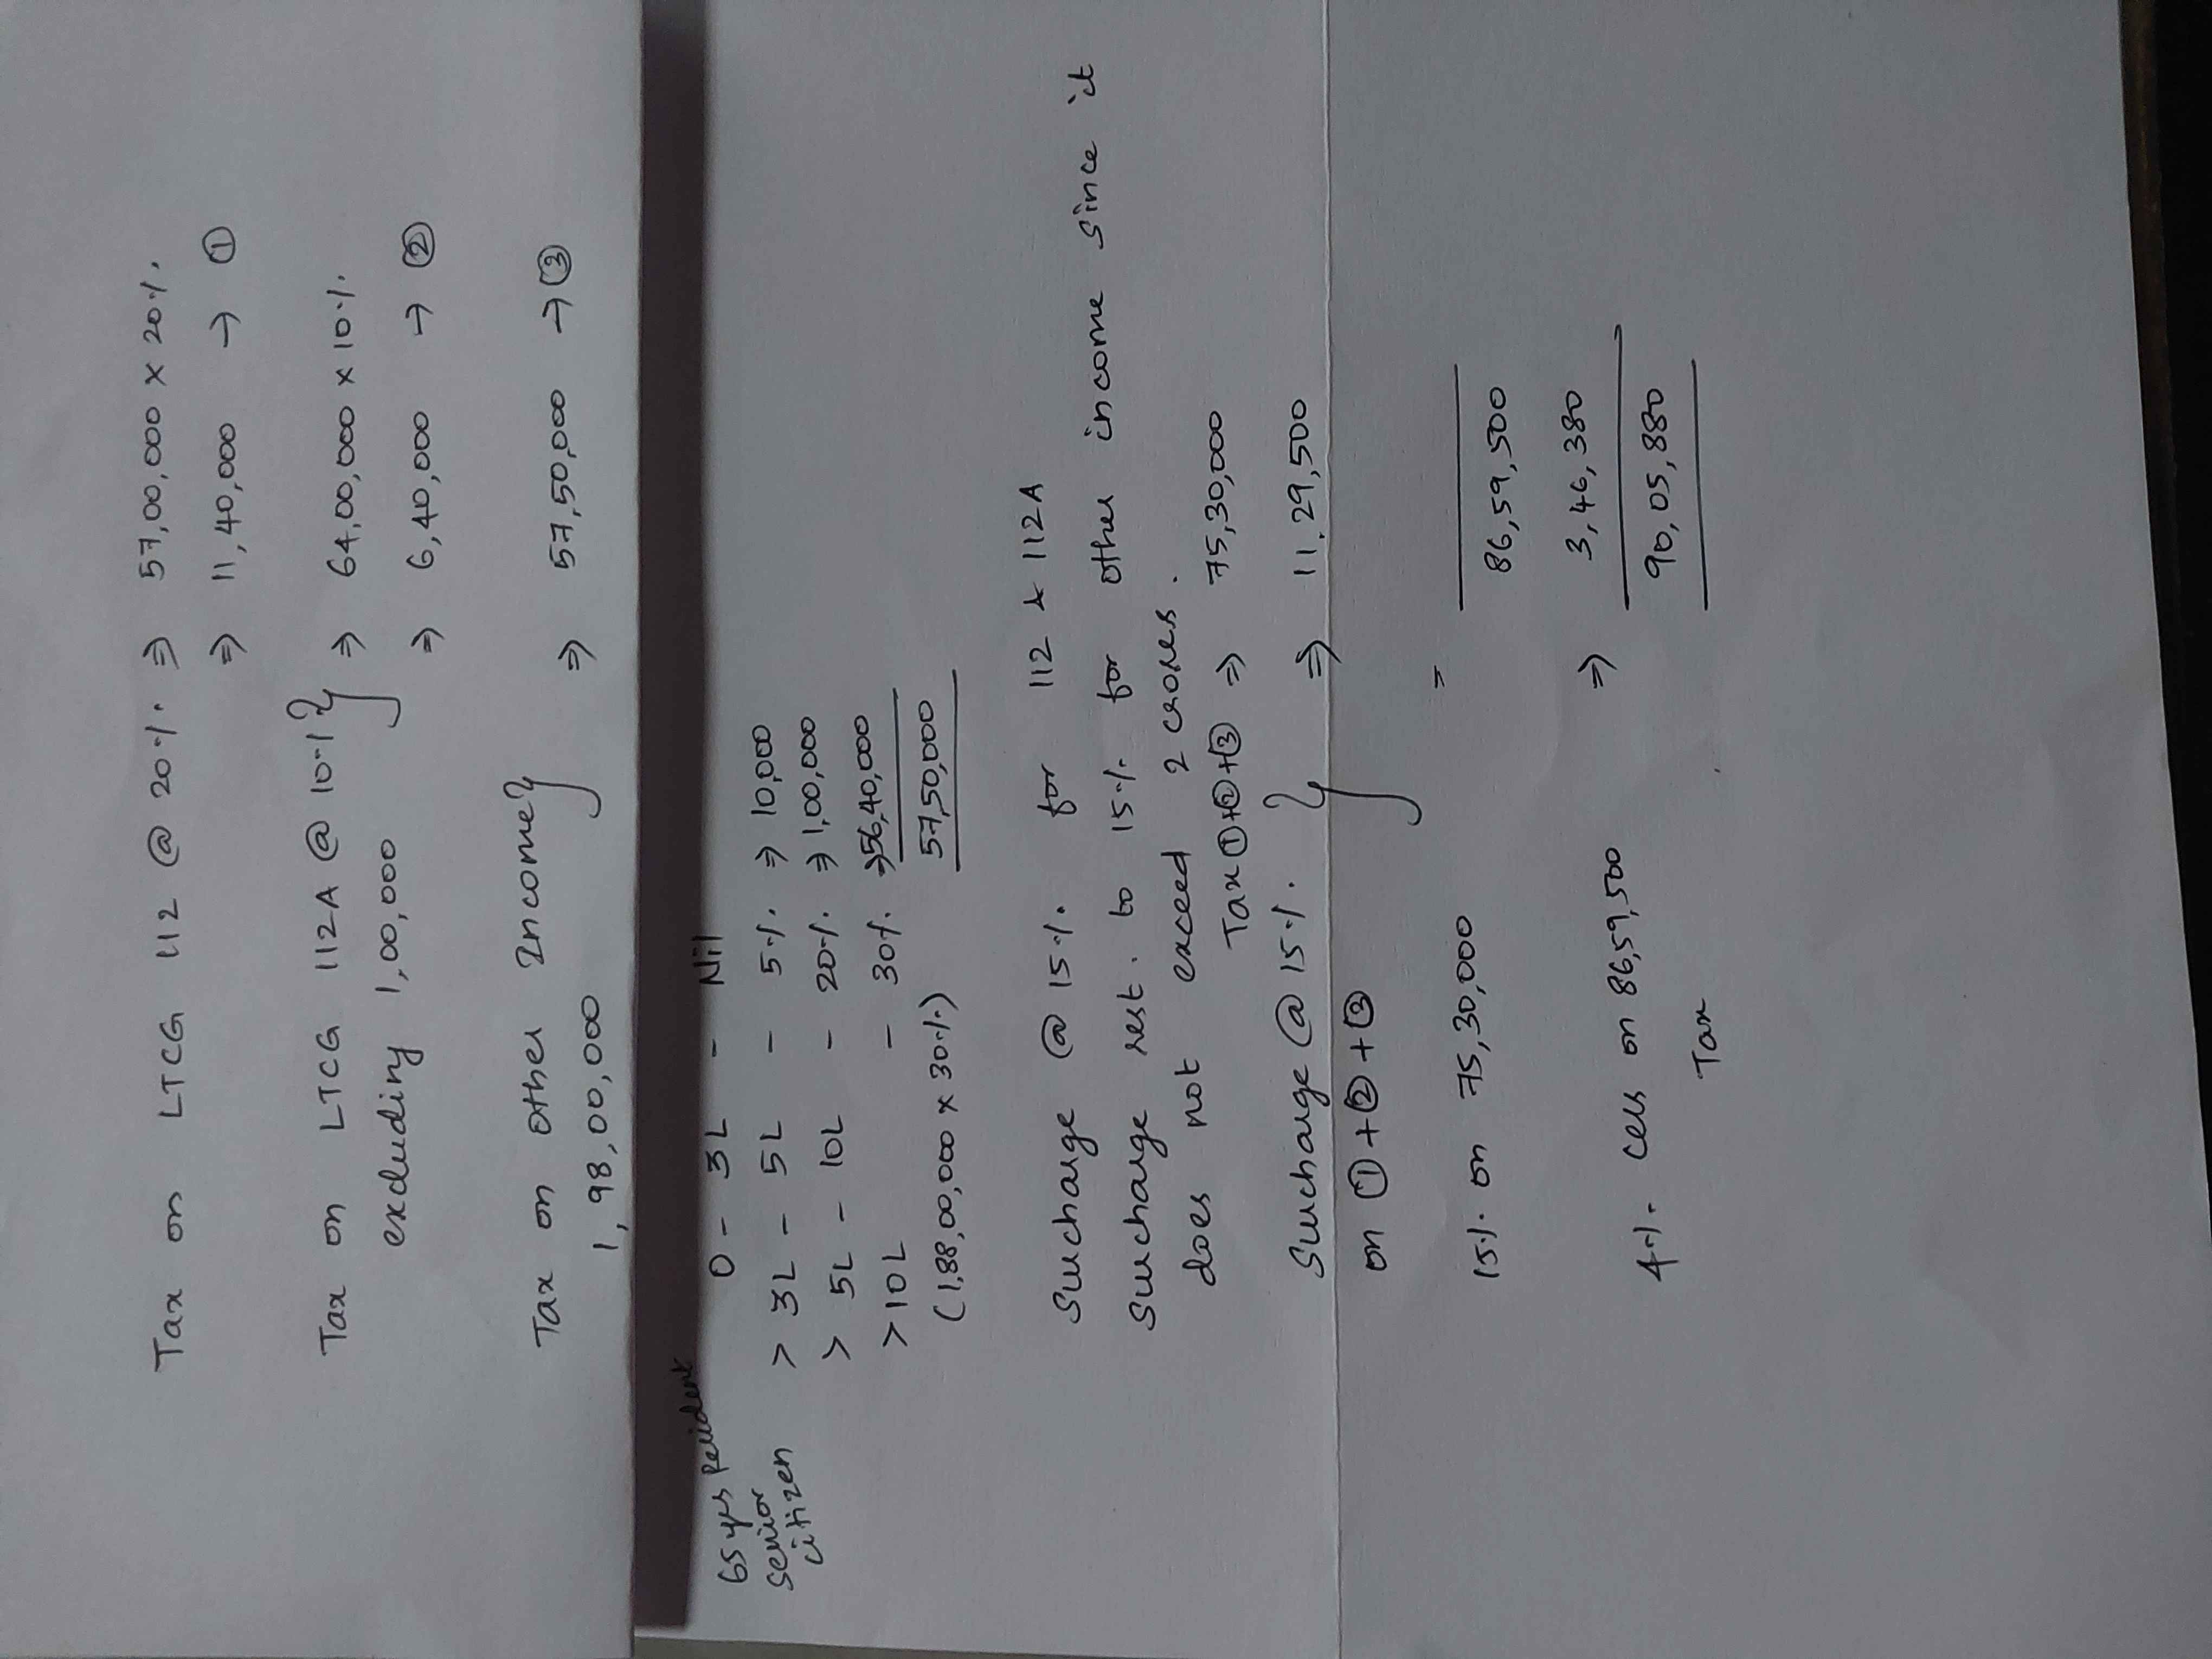 Tax on LTCG 112 @ 20%. ⇒ 57,00,000 x 20%.
⇒ 11,40,000 → ①
Tax on LTCG 112A @ 10%} ⇒ 64,00,000 x 10%.
excluding 1,00,000 ⇒ 6,40,000 → ②
Tax on other Income} ⇒ 57,50,000 → ③
1,98,00,000
65 yrs Resident
senior
citizen
0 - 3L - Nil
> 3L - 5L - 5%. ⇒ 10,000
> 5L - 10L - 20%. ⇒ 1,00,000
> 10L - 30%. ⇒ 56,40,000
(1,88,00,000 x 30%.) 57,50,000
Surcharge @ 15%. for 112 & 112A
Surcharge rest. to 15%. for other income since it
does not exceed 2 crores.
Tax ①+②+③ ⇒ 75,30,000
Surcharge @ 15%. } ⇒ 11,29,500
on ①+②+③
=
15%. on 75,30,000 86,59,500
4%. cess on 86,59,500 ⇒ 3,46,380
Tax 90,05,880